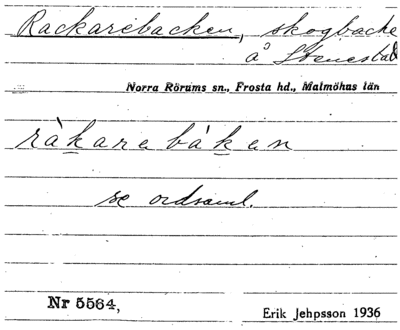 Rackarebacken, skogbacke
å Stenestad
Norra Rörums sn., Frosta hd., Malmöhus län
ràkarebáken
se ordsaml.
Nr 5564,
Erik Jehpsson 1936